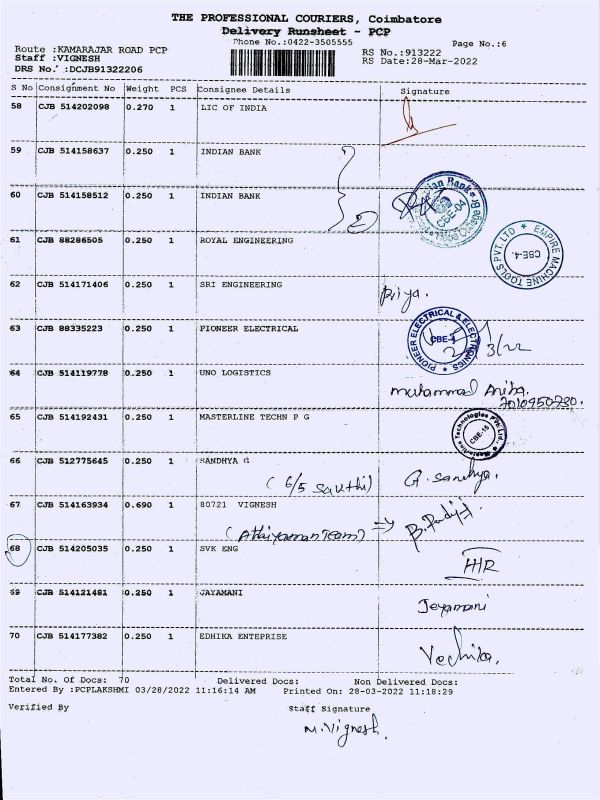 THE PROFESSIONAL COURIERS, Coimbatore
Delivery Runsheet - PCP
Phone No.:0422-3505555
Page No.:6
Route :KAMARAJAR ROAD PCP
RS No.:913222
Staff :VIGNESH
RS Date:28-Mar-2022
DRS No. :DCJB91322206
S No Consignment No Weight PCS Consignee Details Signature
58 CJB 514202098 0.270 1 LIC OF INDIA
59 CJB 514158637 0.250 1 INDIAN BANK
60 CJB 514158512 0.250 1 INDIAN BANK
2
Indian Bank
CBE-04
61 CJB 88286505 0.250 1 ROYAL ENGINEERING
EMPIRE MACHINE TOOLS PVT.LTD
CBE-4.
62 CJB 514171406 0.250 1 SRI ENGINEERING
priya.
63 CJB 88335223 0.250 1 PIONEER ELECTRICAL
PIONEER ELECTRICAL & ELECTRONICS
CBE-4
3/22
64 CJB 514119778 0.250 1 UNO LOGISTICS
muhammad
7010950730.
65 CJB 514192431 0.250 1 MASTERLINE TECHN P G
Masterline Technologies Pvt. Ltd.
CBE-15
66 CJB 512775645 0.250 1 SANDHYA G
(6/5 Sakthi) G. Sandhya.
67 CJB 514163934 0.690 1 80721 VIGNESH
(Athiyaman Team) B. Pandi
68 CJB 514205035 0.250 1 SVK ENG
69 CJB 514121481 0.250 1 JAYAMANI
Jeyamani
70 CJB 514177382 0.250 1 EDHIKA ENTEPRISE
Vechika.
Total No. Of Docs: 70 Delivered Docs: Non Delivered Docs:
Entered By :PCPLAKSHMI 03/28/2022 11:16:14 AM Printed On: 28-03-2022 11:18:29
Verified By Staff Signature
M.Vignesh.